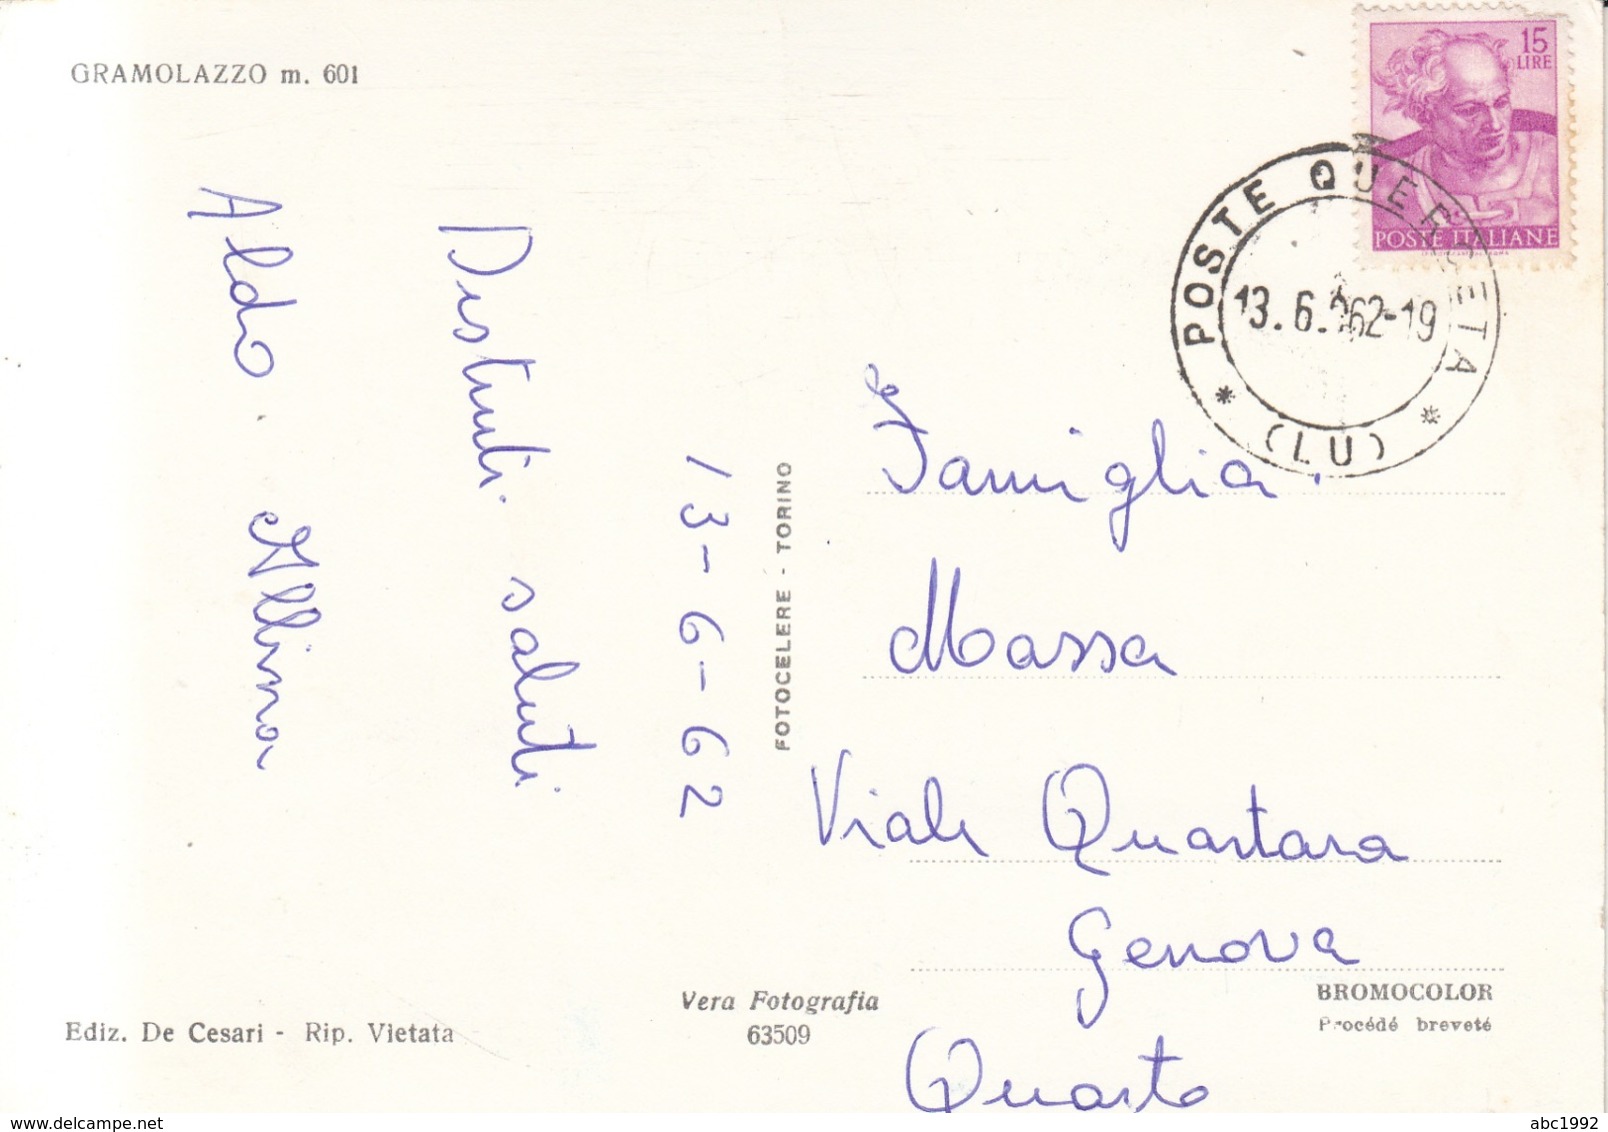 GRAMOLAZZO m. 601
15
LIRE
POSTE ITALIANE
POSTE QUERCETA
13.6.62-19
(LU)
13-6-62
Distinti saluti
Aldo
FOTOCELERE - TORINO
Famiglia
Massa
Viale Quartara
Genova
Quarto
Vera Fotografia
63509
BROMOCOLOR
Procédé breveté
Ediz. De Cesari - Rip. Vietata
abc1992